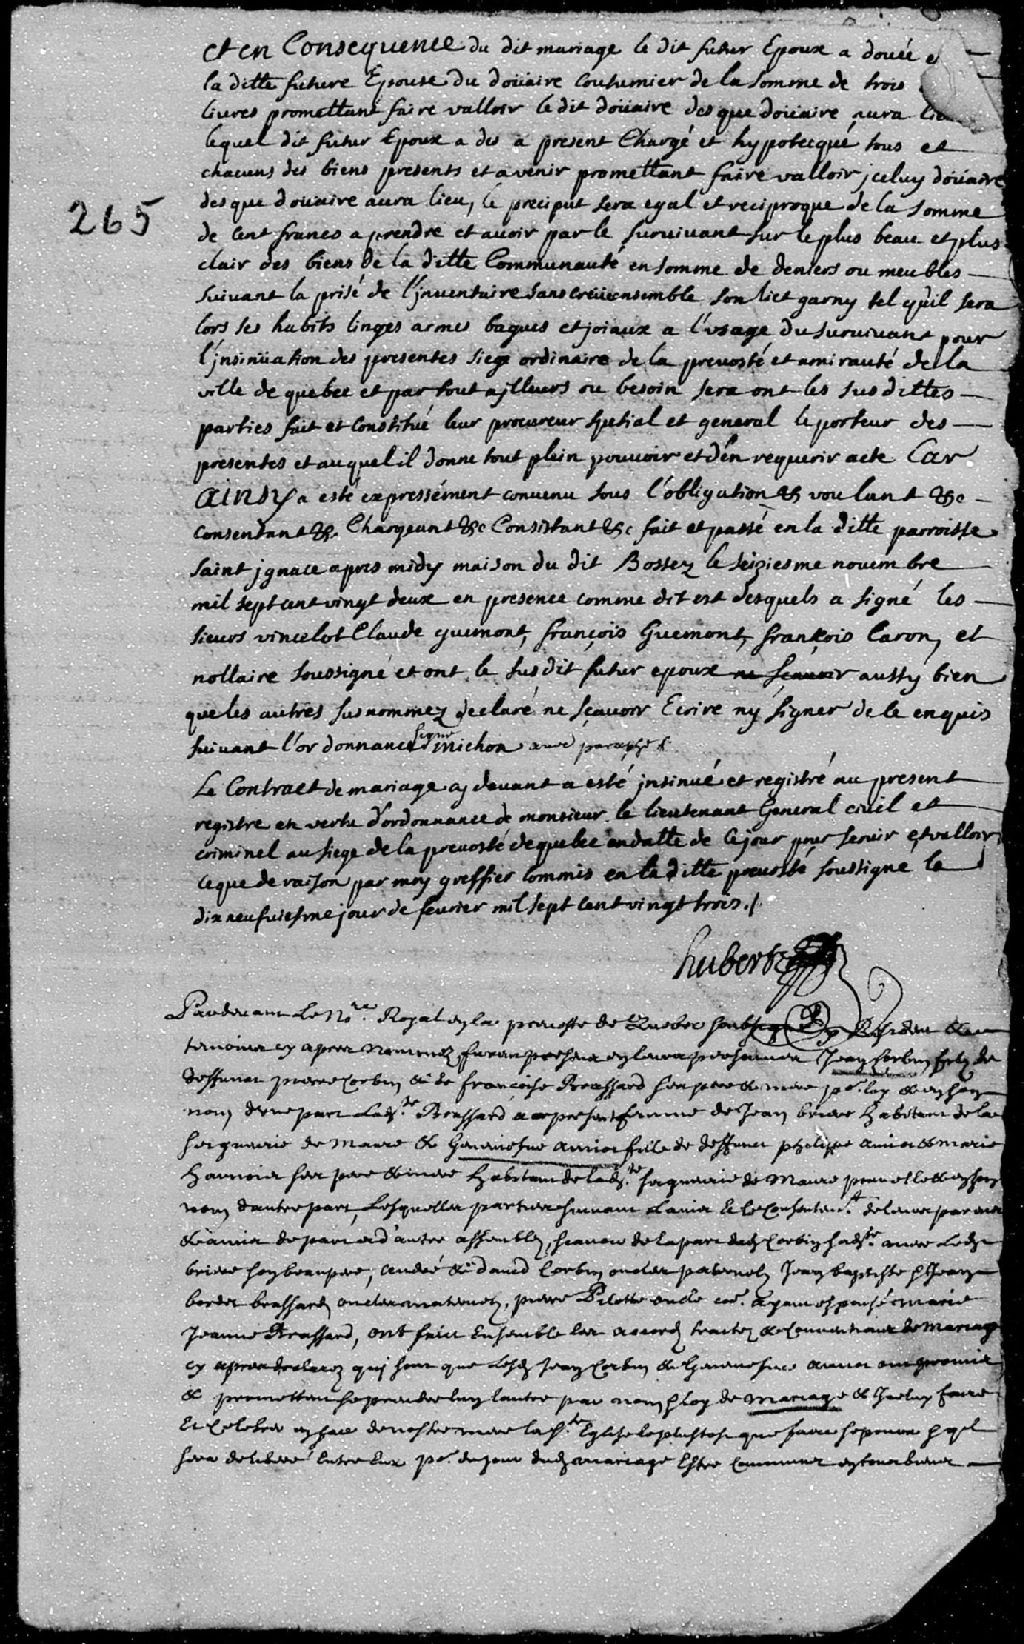 et en Consequence du dit mariage le dit futur Epoux a doüée
la ditte future Epouse du doüaire coutumier de la somme de trois
livres promettant faire valloir le dit doüaire des que doüaire aura lieu
lequel dit futur Epoux a des a present Chargé et hypotecqué tous et
chacuns des biens presents et avenir promettant faire valloir jceluy doüaire
265
des que douaire aura lieu, le preciput sera egal et reciproque de la somme
de Cent francs a prendre et avoir par le survivant sur le plus beau et plus
clair des biens de la ditte Communauté en somme de deniers ou meubles
suivant la prisé de l'jnventaire sans creüe ensemble son lict garny tel qu'il sera
lors ses habits linges armes bagues et joiaux a l'usage du survivant pour
l'jnsinüation des presentes siege ordinaire de la prevosté et amirauté de la
ville de quebec et par tout ajlleurs ou besoin sera ont les sus dittes
parties fait et Constitué leur procureur spetial et general le porteur des
presentes et auquel il donne tout plein pouvoir et d'en requerir acte Car
ainsy a esté expressément convenu sous l'obligation &c voulant &c
Consendant &c Chargeant &c Consistant &c fait et passé en la ditte parroisse
saint jgnace apres midy maison du dit Bossez le seiziesme novembre
mil sept cent vingt deux en presence comme dit est desquels a signé les
sieurs vincelot Claude guemont, françois Guemont, françois Caron, et
nottaire soussigné et ont le susdit futur epoux ne sçavoir aussy bien
que les autres susnommez declaré ne sçavoir Ecrire ny signer de le enquis
suivant l'ordonnance signé michon avec paraphe
Le Contract de mariage cy devant a esté jnsinué et registré au present
registre en vertu d'ordonnance de monsieur le lieutenant General civil et
criminel au siege de la prevosté de quebec en datte de ce jour pour servir et valloir
ce que de raison par moy greffier Commis en la ditte prevosté soussigné le
dix neufuiesme jour de fevrier mil sept cent vingt trois ./.
hubert
Pardevant Le No.re Royal en la prevosté de Quebec
temoins cy apres nommez furent presens en leurs personnes Jean Corbin fils de
deffunct pierre Corbin & de françoise Brassard ses pere & mere po.r luy & en son
nom d'une part Lad.te Brassard a present femme de Jean briere habitant de la
seigneurie de Maure & Genevieve amiot fille de deffunct philippe amiot & Marie
harnois ses pere & mere habitans de lad.te seigneurie de Maure pour elle & en son
nom d'autre part, Lesquelles parties suivant L'avis & le Consentem.t de leurs parens
& amis de part et d'autre assemblez, sçavoir de la part dud. Corbin sad.te mere Led.
briere son beaupere, andré & david Corbin oncles paternels Jean baptiste & Jean
brassard oncles maternels, pierre Pilotte oncle ayant espousé marie
Jeanne Brassard, ont fait Ensemble les accords traitez & Conventions de mariage
cy apres declarez qui sont que Lesd. Jean Corbin & Genevieve amiot ont promis
& promettent se prendre l'un l'autre par nom & loy de mariage & Jceluy faire
Et Celebrer en face de nostre mere la s.te Eglise le plustost que faire se pourra & qu'il
sera deliberé Entre Eux po.r du jour dud. mariage Estre Communs en tous biens